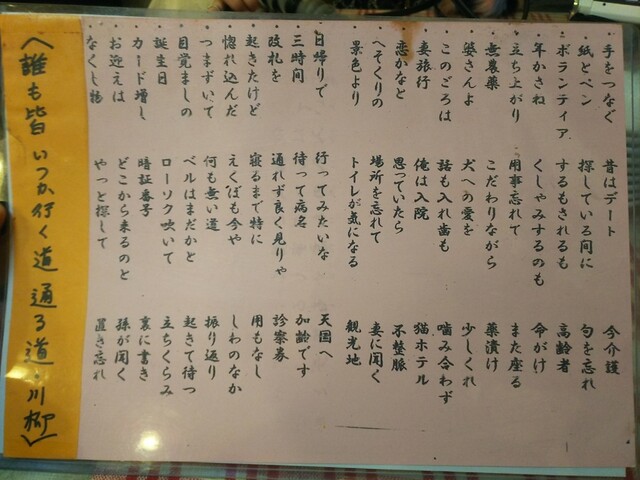 ・手をつなぐ　昔はデート　今介護
・紙とペン　探している間に　句を忘れ
・ボランティア　するもされるも　高齢者
・年かさね　くしゃみするのも　命がけ
・立ち上がり　用事忘れて　また座る
・無農薬　こだわりながら　薬漬け
・婆さんよ　犬への愛を　少しくれ
・このごろは　話も入れ歯も　噛み合わず
・妻旅行　俺は入院　猫ホテル
・恋かなと　思っていたら　不整脈
・へそくりの　場所を忘れて　妻に聞く
・景色より　トイレが気になる　観光地
・日帰りで　行ってみたいな　天国へ
・三時間　待って病名　加齢です
・改札を　通れず良く見りゃ　診察券
・起きたけど　寝るまで特に　用もなし
・惚れ込んだ　えくぼも今や　しわのなか
・つまずいて　何も無い道　振り返り
・目覚ましの　ベルはまだかと　起きて待つ
・誕生日　ローソク吹いて　立ちくらみ
・カード増し　暗証番号　裏に書き
・お迎えは　どこから来るのと　孫が聞く
・なくし物　やっと探して　置き忘れ
〈誰も皆いつか行く道通る道・川柳〉